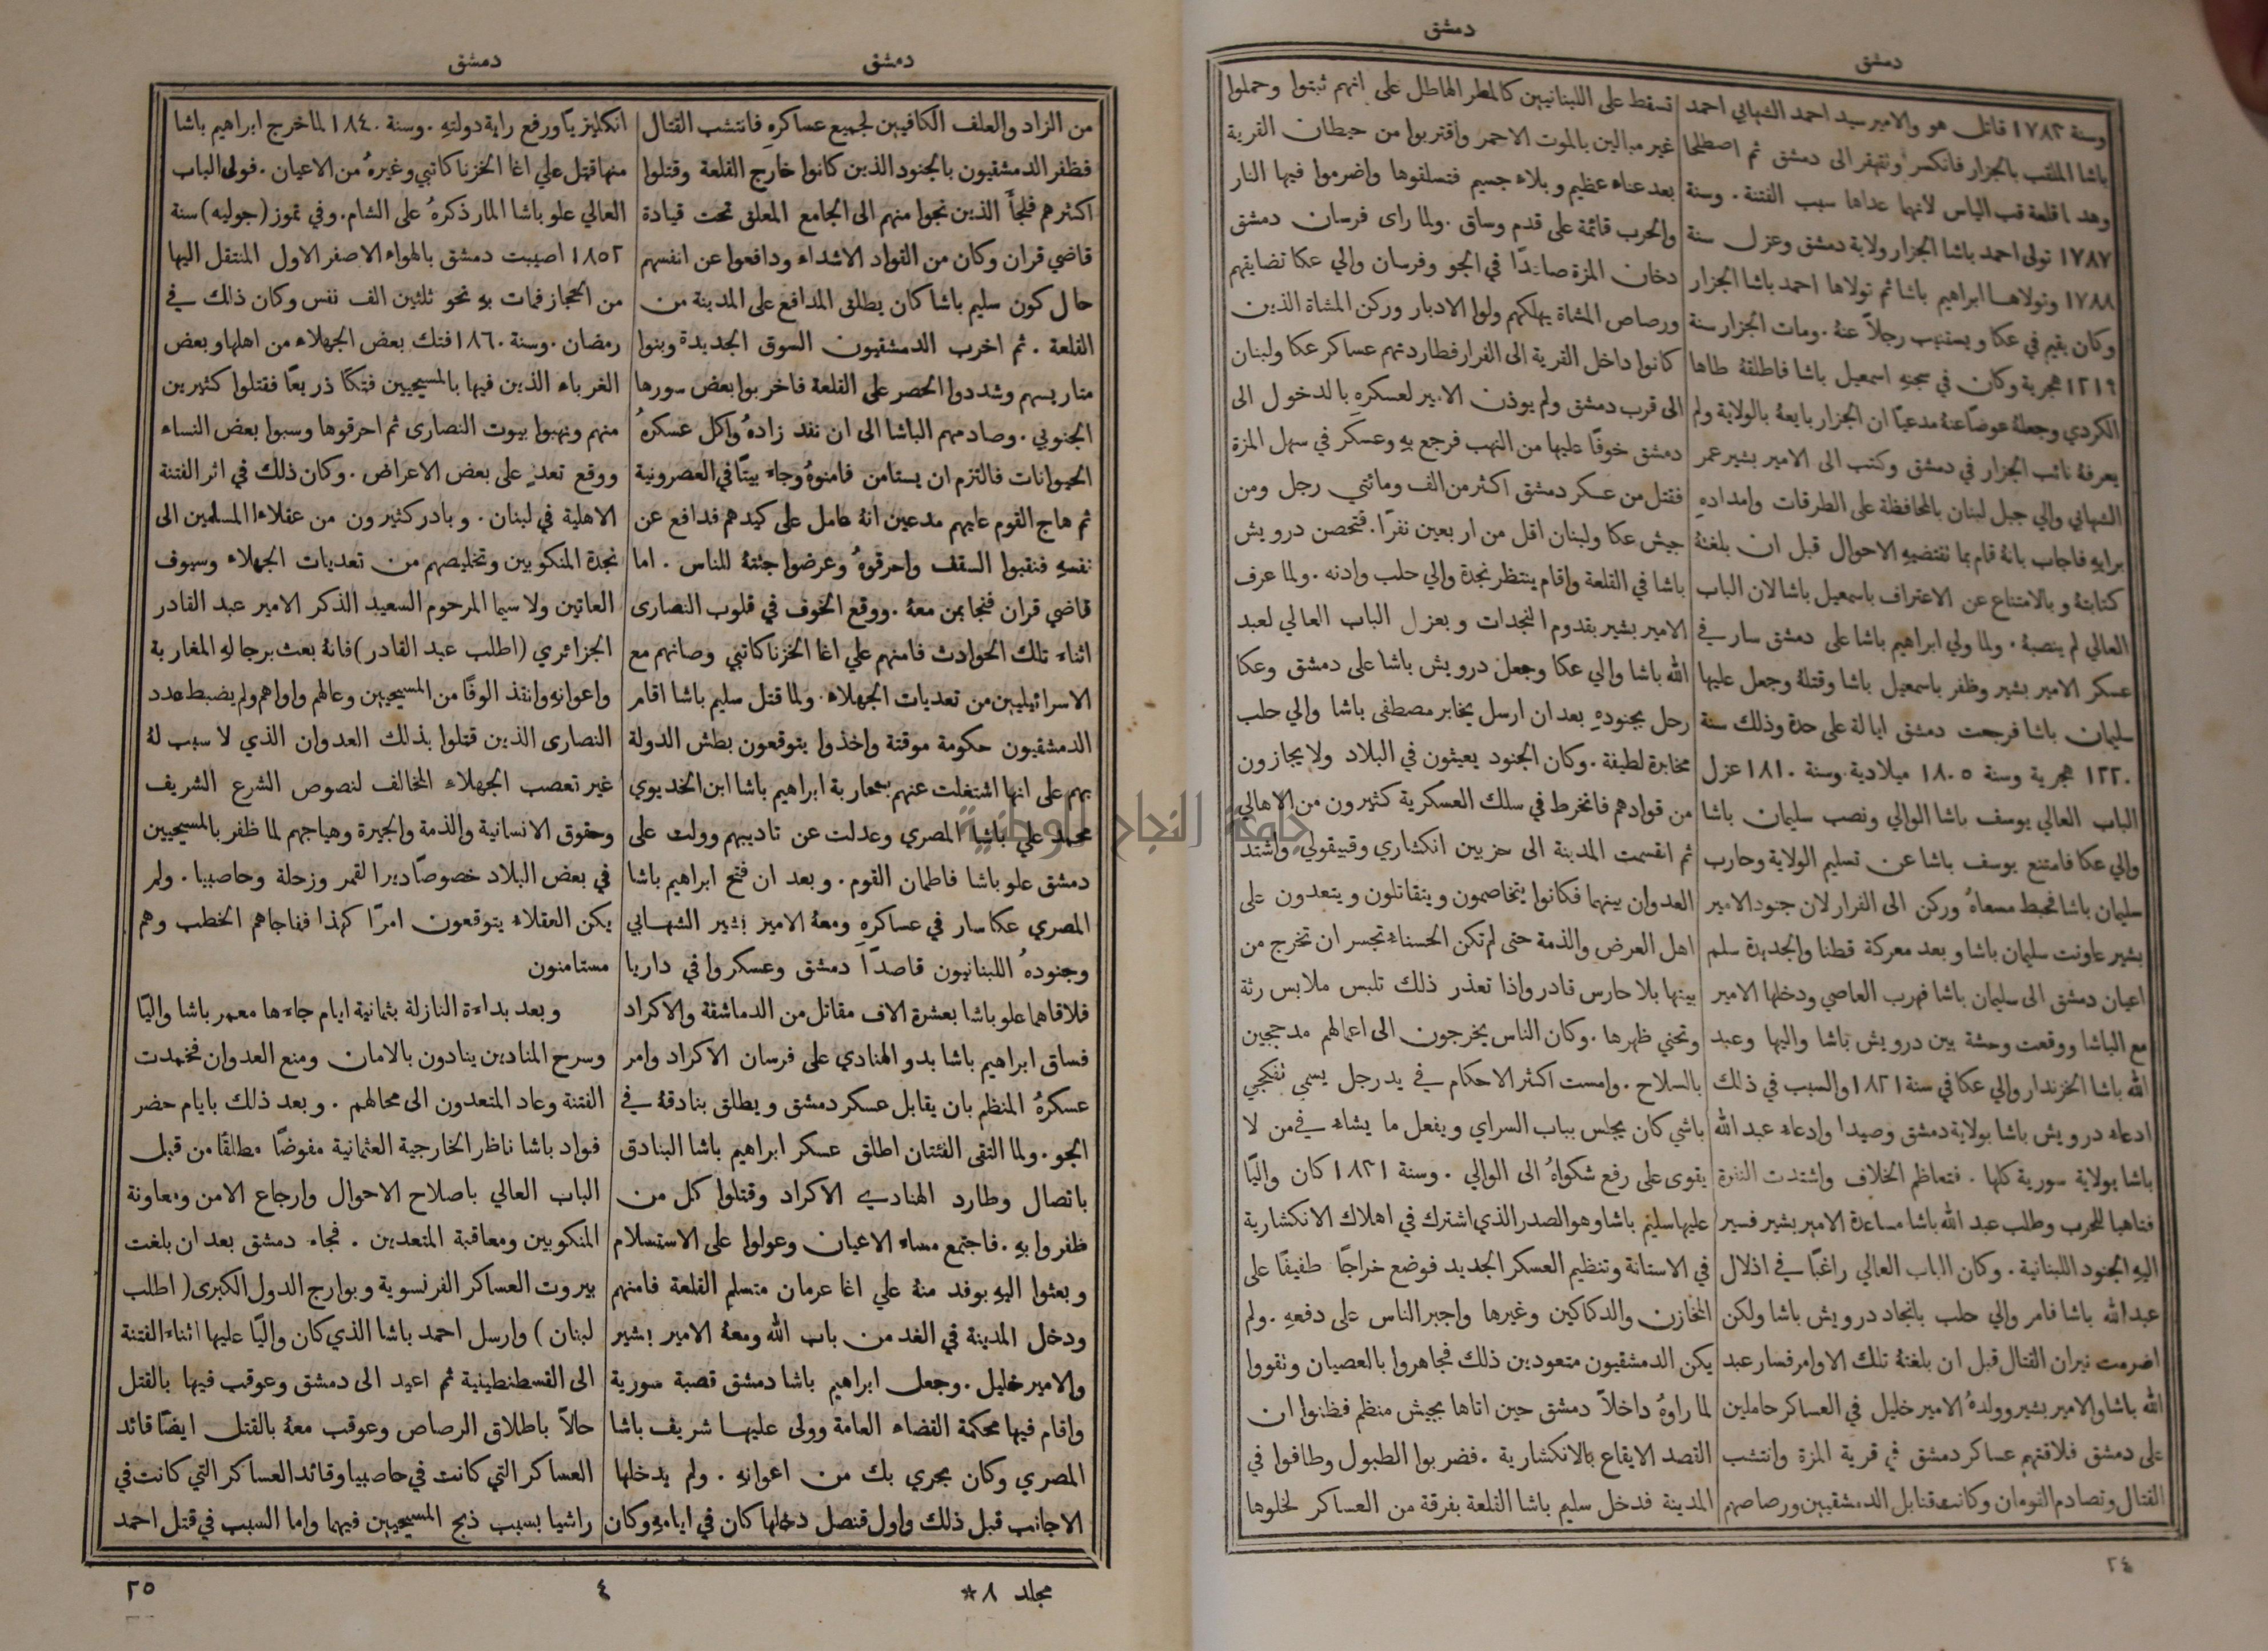 دمشق
دمشق
وسنة ١٧٨٣ قاتل هو والامير سيد احمد الشهابي احمد
باشا الملقب بالجزار فانكسر وتقهقر الى دمشق ثم اصطلحا
وهدما قلعة قب الياس لانهما عداها سبب الفتنة . وسنة
١٧٨٧ تولى احمد باشا الجزار ولاية دمشق وعزل سنة
١٧٨٨ وتولاها ابراهيم باشا ثم تولاها احمد باشا الجزار
وكان يقيم في عكا ويستنيب رجلاً عنهُ . ومات الجزار سنة
١٢١٩ هجرية وكان في سجنهِ اسمعيل باشا فاطلقهُ طاها
الكردي وجعلهُ عوضاً عنهُ مدعياً ان الجزار بايعهُ بالولاية ولم
يعرفهُ نائب الجزار في دمشق وكتب الى الامير بشير عمر
الشهابي والي جبل لبنان بالمحافظة على الطرقات وامدادهِ
برايهِ فاجاب بانهُ قام بما تقتضيهِ الاحوال قبل ان بلغهُ
كتابهُ وبالامتناع عن الاعتراف باسمعيل باشا لان الباب
العالي لم ينصبهُ . ولما ولي ابراهيم باشا على دمشق سار في
عسكر الامير بشير وظفر باسمعيل باشا وقتلهُ وجعل عليها
سليمان باشا فرجعت دمشق ايالة على حدة وذلك سنة
١٢٢٠ هجرية وسنة ١٨٠٥ ميلادية . وسنة ١٨١٠ عزل
الباب العالي يوسف باشا الوالي ونصب سليمان باشا
والي عكا فامتنع يوسف باشا عن تسليم الولاية وحارب
سليمان باشا فحبط مسعاهُ وركن الى الفرار لان جنود الامير
بشير عاونت سليمان باشا وبعد معركة قطنا والجديدة سلم
اعيان دمشق الى سليمان باشا فهرب العاصي ودخلها الامير
مع الباشا ووقعت وحشة بين درويش باشا واليها وعبد
الله باشا الخزندار والي عكا في سنة ١٨٢١ والسبب في ذلك
ادعاء درويش باشا بولاية دمشق وصيدا وادعاء عبد الله
باشا بولاية سورية كلها . فتعاظم الخلاف واشتدت النفرة
فتاهبا للحرب وطلب عبد الله باشا مساعدة الامير بشير فسير
اليهِ الجنود اللبنانية . وكان الباب العالي راغباً في اذلال
عبد الله باشا فامر والي حلب بانجاد درويش باشا ولكن
اضرمت نيران القتال قبل ان بلغتهُ تلك الاوامر فسار عبد
الله باشا والامير بشير وولدهُ الامير خليل في العساكر حاملين
على دمشق فلاقتهم عساكر دمشق في قرية المزة وانتشب
القتال وتصادم القومان وكانت قنابل الدمشقيين ورصاصهم
تسقط على اللبنانيين كالمطر الهاطل على انهم ثبتوا وحملوا
غير مبالين بالموت الاحمر واقتربوا من حيطان القرية
بعد عناء عظيم وبلاء جسيم فتسلقوها واضرموا فيها النار
والحرب قائمة على قدم وساق . ولما راى فرسان دمشق
دخان المزة صاعداً في الجو وفرسان والي عكا تضايقهم
ورصاص المشاة يهلكهم ولوا الادبار وركن المشاة الذين
كانوا داخل القرية الى الفرار فطاردتهم عساكر عكا ولبنان
الى قرب دمشق ولم يوذن الامير لعسكرهِ بالدخول الى
دمشق خوفاً عليها من النهب فرجع بهِ وعسكر في سهل المزة
فقتل من عسكر دمشق اكثر من الف ومائتي رجل ومن
جيش عكا ولبنان اقل من اربعين نفراً . فتحصن درويش
باشا في القلعة واقام ينتظر نجدة والي حلب وادنه . ولما عرف
الامير بشير بقدوم النجدات وبعزل الباب العالي لعبد
الله باشا والي عكا وجعل درويش باشا على دمشق وعكا
رحل بجنودهِ بعد ان ارسل يخابر مصطفى باشا والي حلب
مخابرة لطيفة . وكان الجنود يعيثون في البلاد ولا يجازون
من قوادهم فانخرط في سلك العسكرية كثيرون من الاهالي
ثم انقسمت المدينة الى حزبين انكشاري وقبيقولي واشتد
العدوان بينهما فكانوا يتخاصمون ويتقاتلون ويتعدون على
اهل العرض والذمة حتى لم تكن الحسناء تجسر ان تخرج من
بيتها بلا حارس قادر واذا تعذر ذلك تلبس ملابس رثة
وتحني ظهرها . وكان الناس يخرجون الى اعمالهم مدججين
بالسلاح . وامست اكثر الاحكام في يد رجل يسمى تفكجي
باشي كان يجلس بباب السراي ويفعل ما يشاء في من لا
يقوى على رفع شكواهُ الى الوالي . وسنة ١٨٣١ كان والياً
عليها سليم باشا وهو الصدر الذي اشترك في اهلاك الانكشارية
في الاستانة وتنظيم العسكر الجديد فوضع خراجاً طفيفاً على
المخازن والدكاكين وغيرها واجبر الناس على دفعهِ . ولم
يكن الدمشقيون متعودين ذلك فجاهروا بالعصيان وتقووا
لما راوهُ داخلاً دمشق حين اتاها بجيش منظم فظنوا ان
القصد الايقاع بالانكشارية . فضربوا الطبول وطافوا في
المدينة فدخل سليم باشا القلعة بفرقة من العساكر لخلوها
٢٤
دمشق
دمشق
من الزاد والعلف الكافيين لجميع عساكرهِ فانتشب القتال
فظفر الدمشقيون بالجنود الذين كانوا خارج القلعة وقتلوا
اكثرهم فلجأ الذين نجوا منهم الى الجامع المعلق تحت قيادة
قاضي قران وكان من القواد الاشداء ودافعوا عن انفسهم
حال كون سليم باشا كان يطلق المدافع على المدينة من
القلعة . ثم اخرب الدمشقيون السوق الجديدة وبنوا
متاريسهم وشددوا الحصر على القلعة فاخربوا بعض سورها
الجنوبي . وصادمهم الباشا الى ان نفد زادهُ واكل عسكرهُ
الحيوانات فالتزم ان يستامن فامنوهُ وجاء بيتاً في العصرونية
ثم هاج القوم عليهم مدعين انهُ عامل على كيدهم فدافع عن
نفسهِ فنقبوا السقف واحرقوهُ وعرضوا جثتهُ للناس . اما
قاضي قران فنجا بمن معهُ . ووقع الخوف في قلوب النصارى
اثناء تلك الحوادث فامنهم علي اغا الخزناكاتبي وصانهم مع
الاسرائيليين من تعديات الجهلاء . ولما قتل سليم باشا اقام
الدمشقيون حكومة موقتة واخذوا يتوقعون بطش الدولة
بهم على انها اشتغلت عنهم بمحاربة ابراهيم باشا ابن الخديوي
محمد علي باشا المصري وعدلت عن تاديبهم وولت على
دمشق علو باشا فاطمان القوم . وبعد ان فتح ابراهيم باشا
المصري عكا سار في عساكرهِ ومعهُ الامير بشير الشهابي
وجنودهُ اللبنانيون قاصداً دمشق وعسكروا في داريا
فلاقاهما علو باشا بعشرة الاف مقاتل من الدماشقة والاكراد
فساق ابراهيم باشا بدو الهنادي على فرسان الاكراد وامر
عسكرهُ المنظم بان يقابل عسكر دمشق ويطلق بنادقهُ في
الجو . ولما التقى الفئتان اطلق عسكر ابراهيم باشا البنادق
باتصال وطارد الهنادي الاكراد وقتلوا كل من
ظفروا بهِ . فاجتمع مساء الاعيان وعولوا على الاستسلام
وبعثوا اليهِ بوفد منهُ علي اغا عرمان متسلم القلعة فامنهم
ودخل المدينة في الغد من باب الله ومعهُ الامير بشير
والامير خليل . وجعل ابراهيم باشا دمشق قصبة سورية
واقام فيها محكمة القضاء العامة وولى عليها شريف باشا
المصري وكان بحري بك من اعوانهِ . ولم يدخلها
الاجانب قبل ذلك واول قنصل دخلها كان في ايامهِ وكان
انكليزياً ورفع راية دولتهِ . وسنة ١٨٤٠ لما خرج ابراهيم باشا
منها قتل علي اغا الخزناكاتبي وغيرهُ من الاعيان . فولى الباب
العالي علو باشا المار ذكرهُ على الشام . وفي تموز (جوليه) سنة
١٨٥٢ اصيبت دمشق بالهواء الاصفر الاول المنتقل اليها
من الحجاز فمات بهِ نحو ثلثين الف نفس وكان ذلك في
رمضان . وسنة ١٨٦٠ فتك بعض الجهلاء من اهلها وبعض
الغرباء الذين فيها بالمسيحيين فتكاً ذريعاً فقتلوا كثيرين
منهم ونهبوا بيوت النصارى ثم احرقوها وسبوا بعض النساء
ووقع تعدٍ على بعض الاعراض . وكان ذلك في اثر الفتنة
الاهلية في لبنان . وبادر كثيرون من عقلاء المسلمين الى
نجدة المنكوبين وتخليصهم من تعديات الجهلاء وسيوف
العاتين ولا سيما المرحوم السعيد الذكر الامير عبد القادر
الجزائري (اطلب عبد القادر) فانهُ بعث برجالهِ المغاربة
واعوانهِ وانقذ الوفاً من المسيحيين وعالهم واواهم ولم يضبط عدد
النصارى الذين قتلوا بذلك العدوان الذي لا سبب لهُ
غير تعصب الجهلاء المخالف لنصوص الشرع الشريف
وحقوق الانسانية والذمة والجيرة وهياجهم لما ظفر بالمسيحيين
في بعض البلاد خصوصاً دير القمر وزحلة وحاصبيا . ولم
يكن العقلاء يتوقعون امراً كهذا ففاجاهم الخطب وهم
مستامنون
وبعد بداءة النازلة بثمانية ايام جاءها معمر باشا والياً
وسرح المنادين ينادون بالامان ومنع العدوان فخمدت
الفتنة وعاد المتعدون الى محالهم . وبعد ذلك بايام حضر
فواد باشا ناظر الخارجية العثمانية مفوضاً مطلقاً من قبل
الباب العالي باصلاح الاحوال وارجاع الامن ومعاونة
المنكوبين ومعاقبة المتعدين . فجاء دمشق بعد ان بلغت
بيروت العساكر الفرنسوية وبوارج الدول الكبرى (اطلب
لبنان) وارسل احمد باشا الذي كان والياً عليها اثناء الفتنة
الى القسطنطينية ثم اعيد الى دمشق وعوقب فيها بالقتل
حالاً باطلاق الرصاص وعوقب معهُ بالقتل ايضاً قائد
العساكر التي كانت في حاصبيا وقائد العساكر التي كانت في
راشيا بسبب ذبح المسيحيين فيهما واما السبب في قتل احمد
مجلد ٨*
٤
٢٥
جامعة النجاح الوطنية